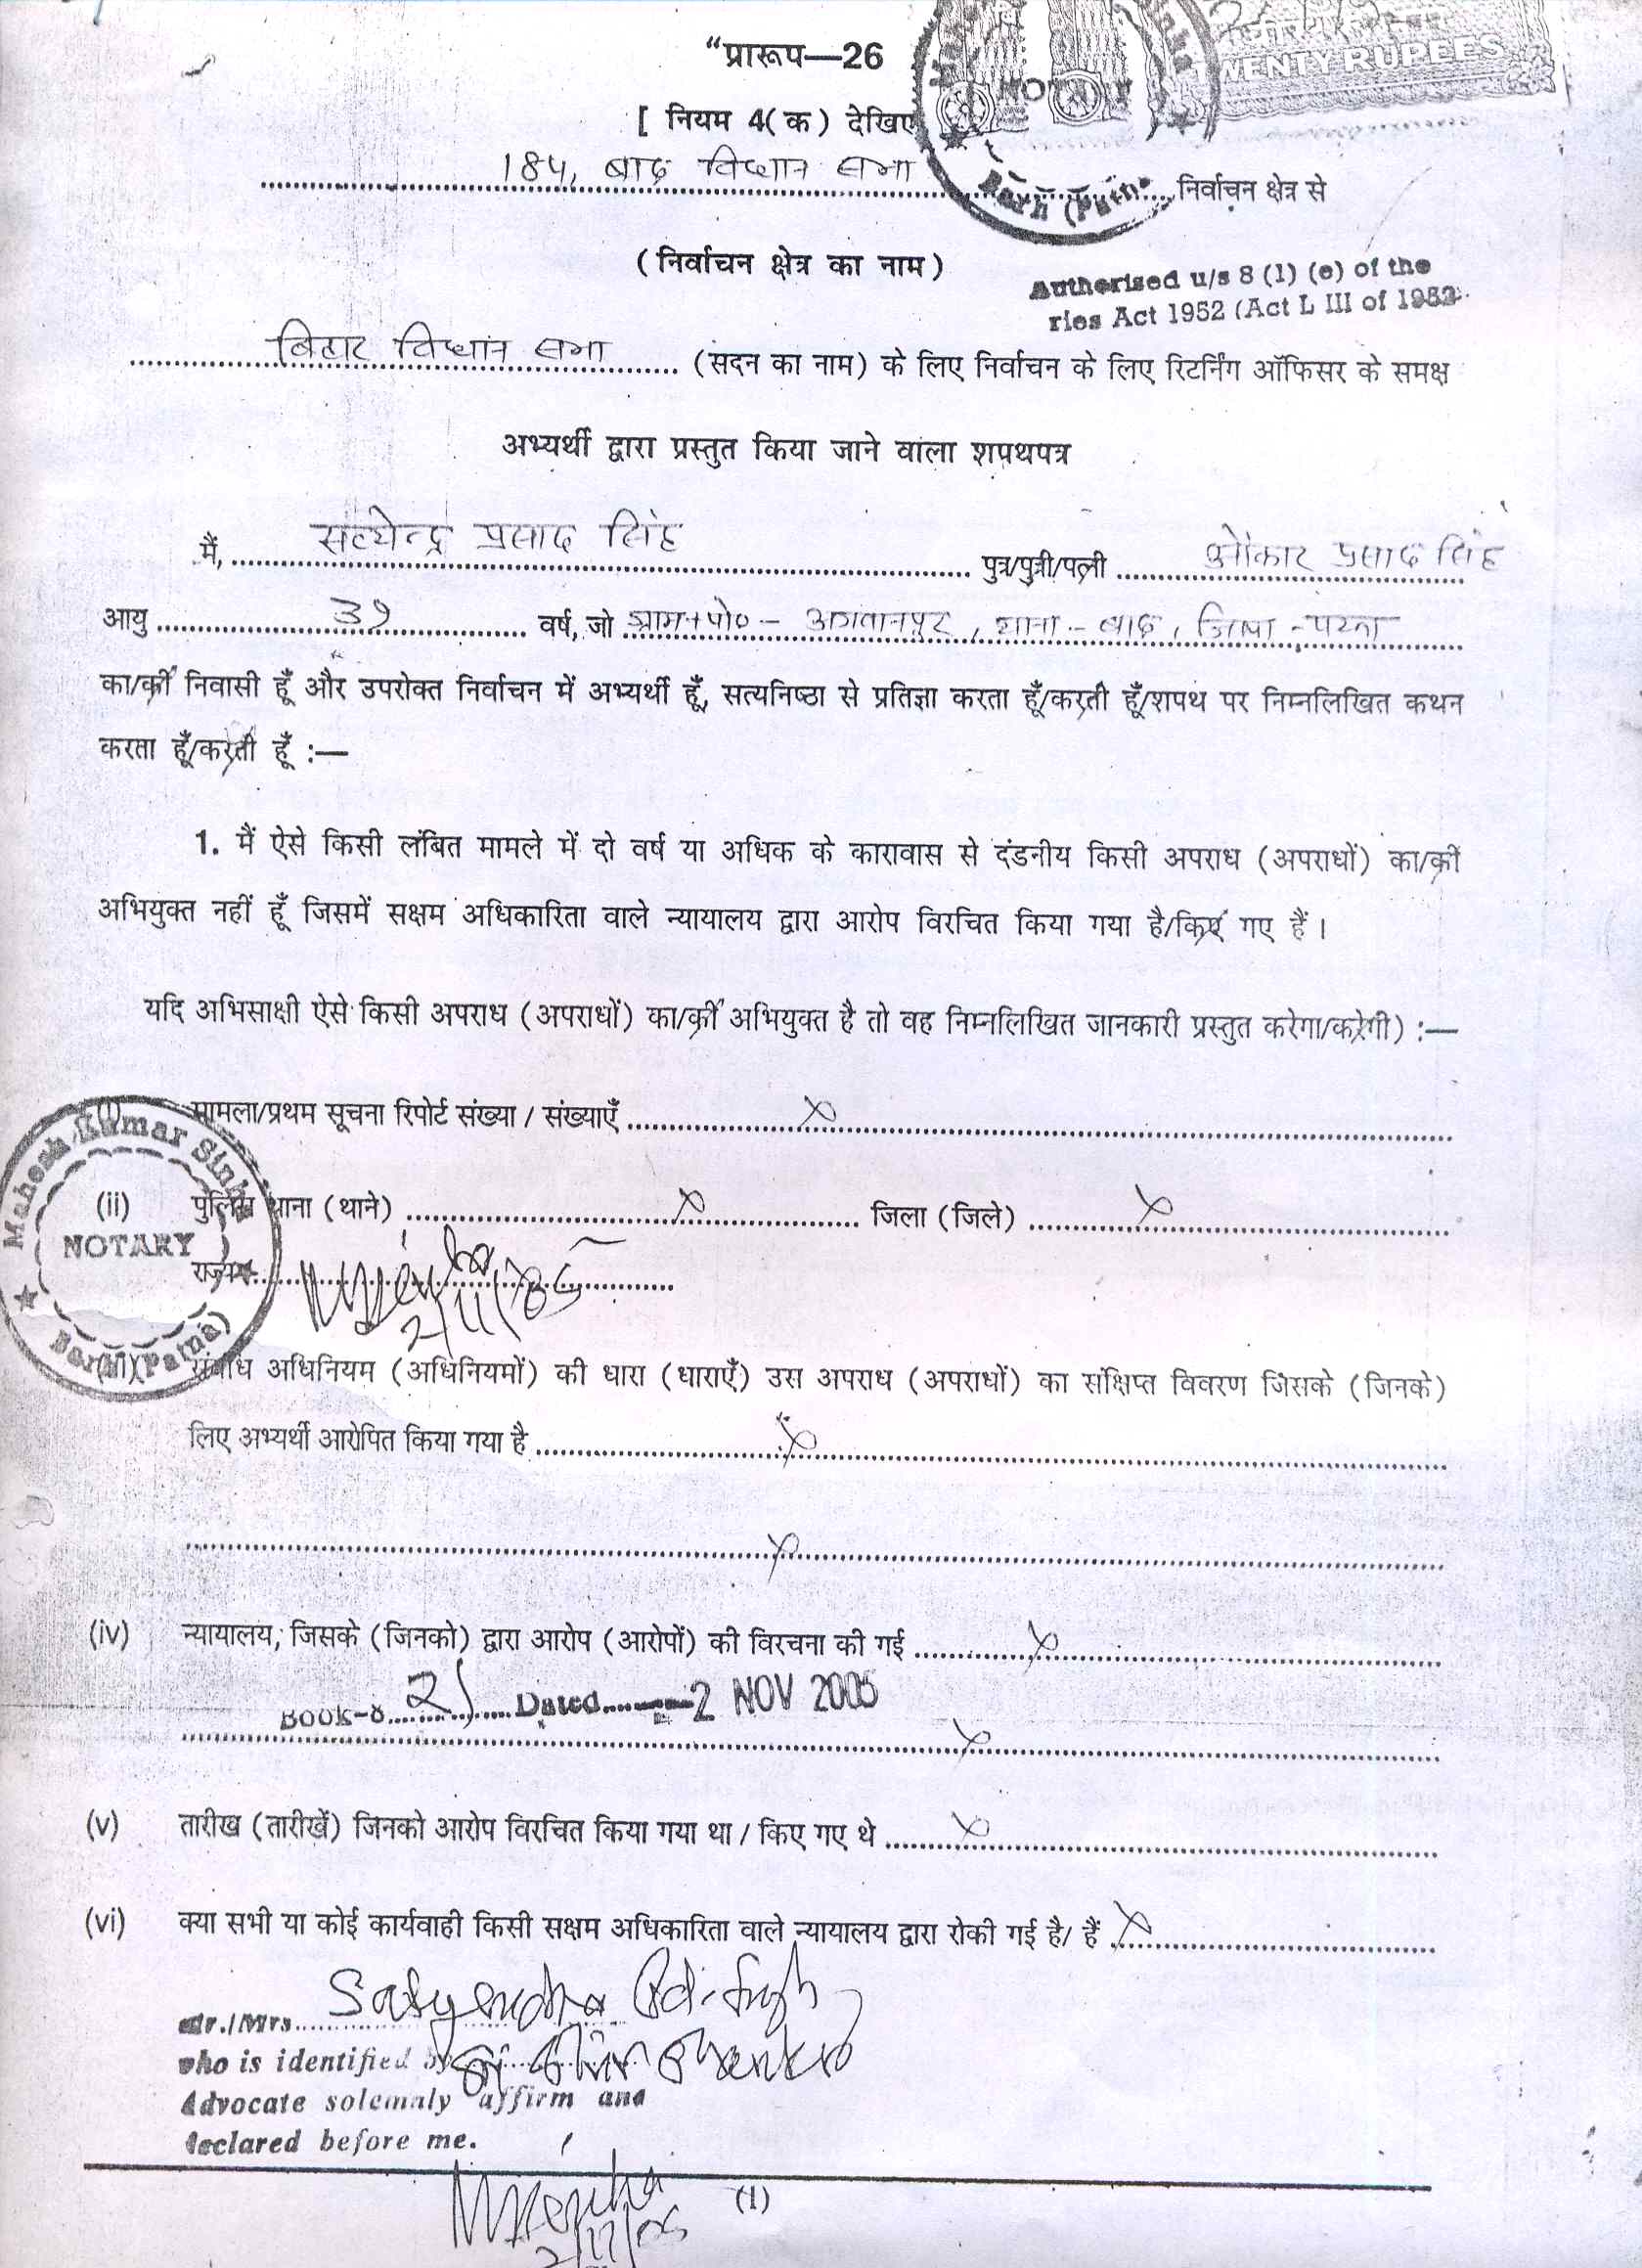 “प्रारूप—26
TWENTY RUPEES
[ नियम 4(क) देखिए
184, बाढ़ विधान सभा निर्वाचन क्षेत्र से
(निर्वाचन क्षेत्र का नाम)
Authorised u/s 8 (1) (e) of the
ries Act 1952 (Act L III of 1952
बिहार विधान सभा (सदन का नाम) के लिए निर्वाचन के लिए रिटर्निंग ऑफिसर के समक्ष
अभ्यर्थी द्वारा प्रस्तुत किया जाने वाला शपथपत्र
मैं, सत्येन्द्र प्रसाद सिंह पुत्र/पुत्री/पत्नी ओंकार प्रसाद सिंह
आयु 39 वर्ष, जो ग्राम+पो०- अगवानपुर, थाना-बाढ़, जिला-पटना
का/की निवासी हूँ और उपरोक्त निर्वाचन में अभ्यर्थी हूँ, सत्यनिष्ठा से प्रतिज्ञा करता हूँ/करती हूँ/शपथ पर निम्नलिखित कथन
करता हूँ/करती हूँ :—
1. मैं ऐसे किसी लंबित मामले में दो वर्ष या अधिक के कारावास से दंडनीय किसी अपराध (अपराधों) का/की
अभियुक्त नहीं हूँ जिसमें सक्षम अधिकारिता वाले न्यायालय द्वारा आरोप विरचित किया गया है/किए गए हैं।
यदि अभिसाक्षी ऐसे किसी अपराध (अपराधों) का/की अभियुक्त है तो वह निम्नलिखित जानकारी प्रस्तुत करेगा/करेगी) :—
(i) मामला/प्रथम सूचना रिपोर्ट संख्या / संख्याएँ x
Mahesh Kumar Sinha
NOTARY
Barh (Patna)
(ii) पुलिस थाना (थाने) x जिला (जिले) x
राज्य
2/11/05
(iii) संबंधि अधिनियम (अधिनियमों) की धारा (धाराएँ) उस अपराध (अपराधों) का संक्षिप्त विवरण जिसके (जिनके)
लिए अभ्यर्थी आरोपित किया गया है x
x
(iv) न्यायालय, जिसके (जिनको) द्वारा आरोप (आरोपों) की विरचना की गई x
Book-8 21 Dated -2 NOV 2005
x
(v) तारीख (तारीखें) जिनको आरोप विरचित किया गया था / किए गए थे x
(vi) क्या सभी या कोई कार्यवाही किसी सक्षम अधिकारिता वाले न्यायालय द्वारा रोकी गई है/ हैं x
Mr./Mrs Satyendra Pd. Singh
who is identified by
Advocate solemnly affirm and
declared before me.
(1)
2/11/05